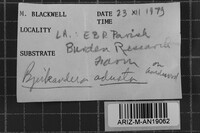 M. BLACKWELL DATE 23 XII 1979
LOCALITY LA.: EBR Parish
Burden Research
SUBSTRATE Farm on hardwood
Bjerkandera adusta
ARIZ-M-AN19062